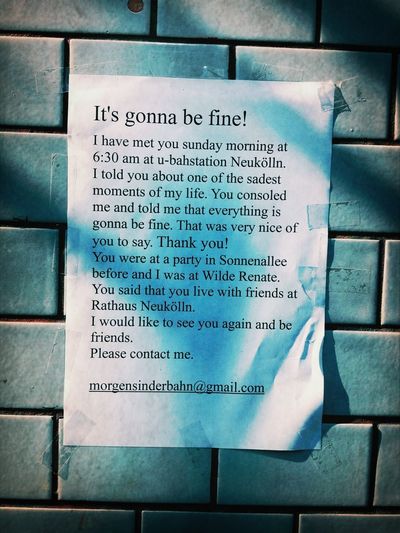 It's gonna be fine!
I have met you sunday morning at
6:30 am at u-bahstation Neukölln.
I told you about one of the sadest
moments of my life. You consoled
me and told me that everything is
gonna be fine. That was very nice of
you to say. Thank you!
You were at a party in Sonnenallee
before and I was at Wilde Renate.
You said that you live with friends at
Rathaus Neukölln.
I would like to see you again and be
friends.
Please contact me.
morgensinderbahn@gmail.com